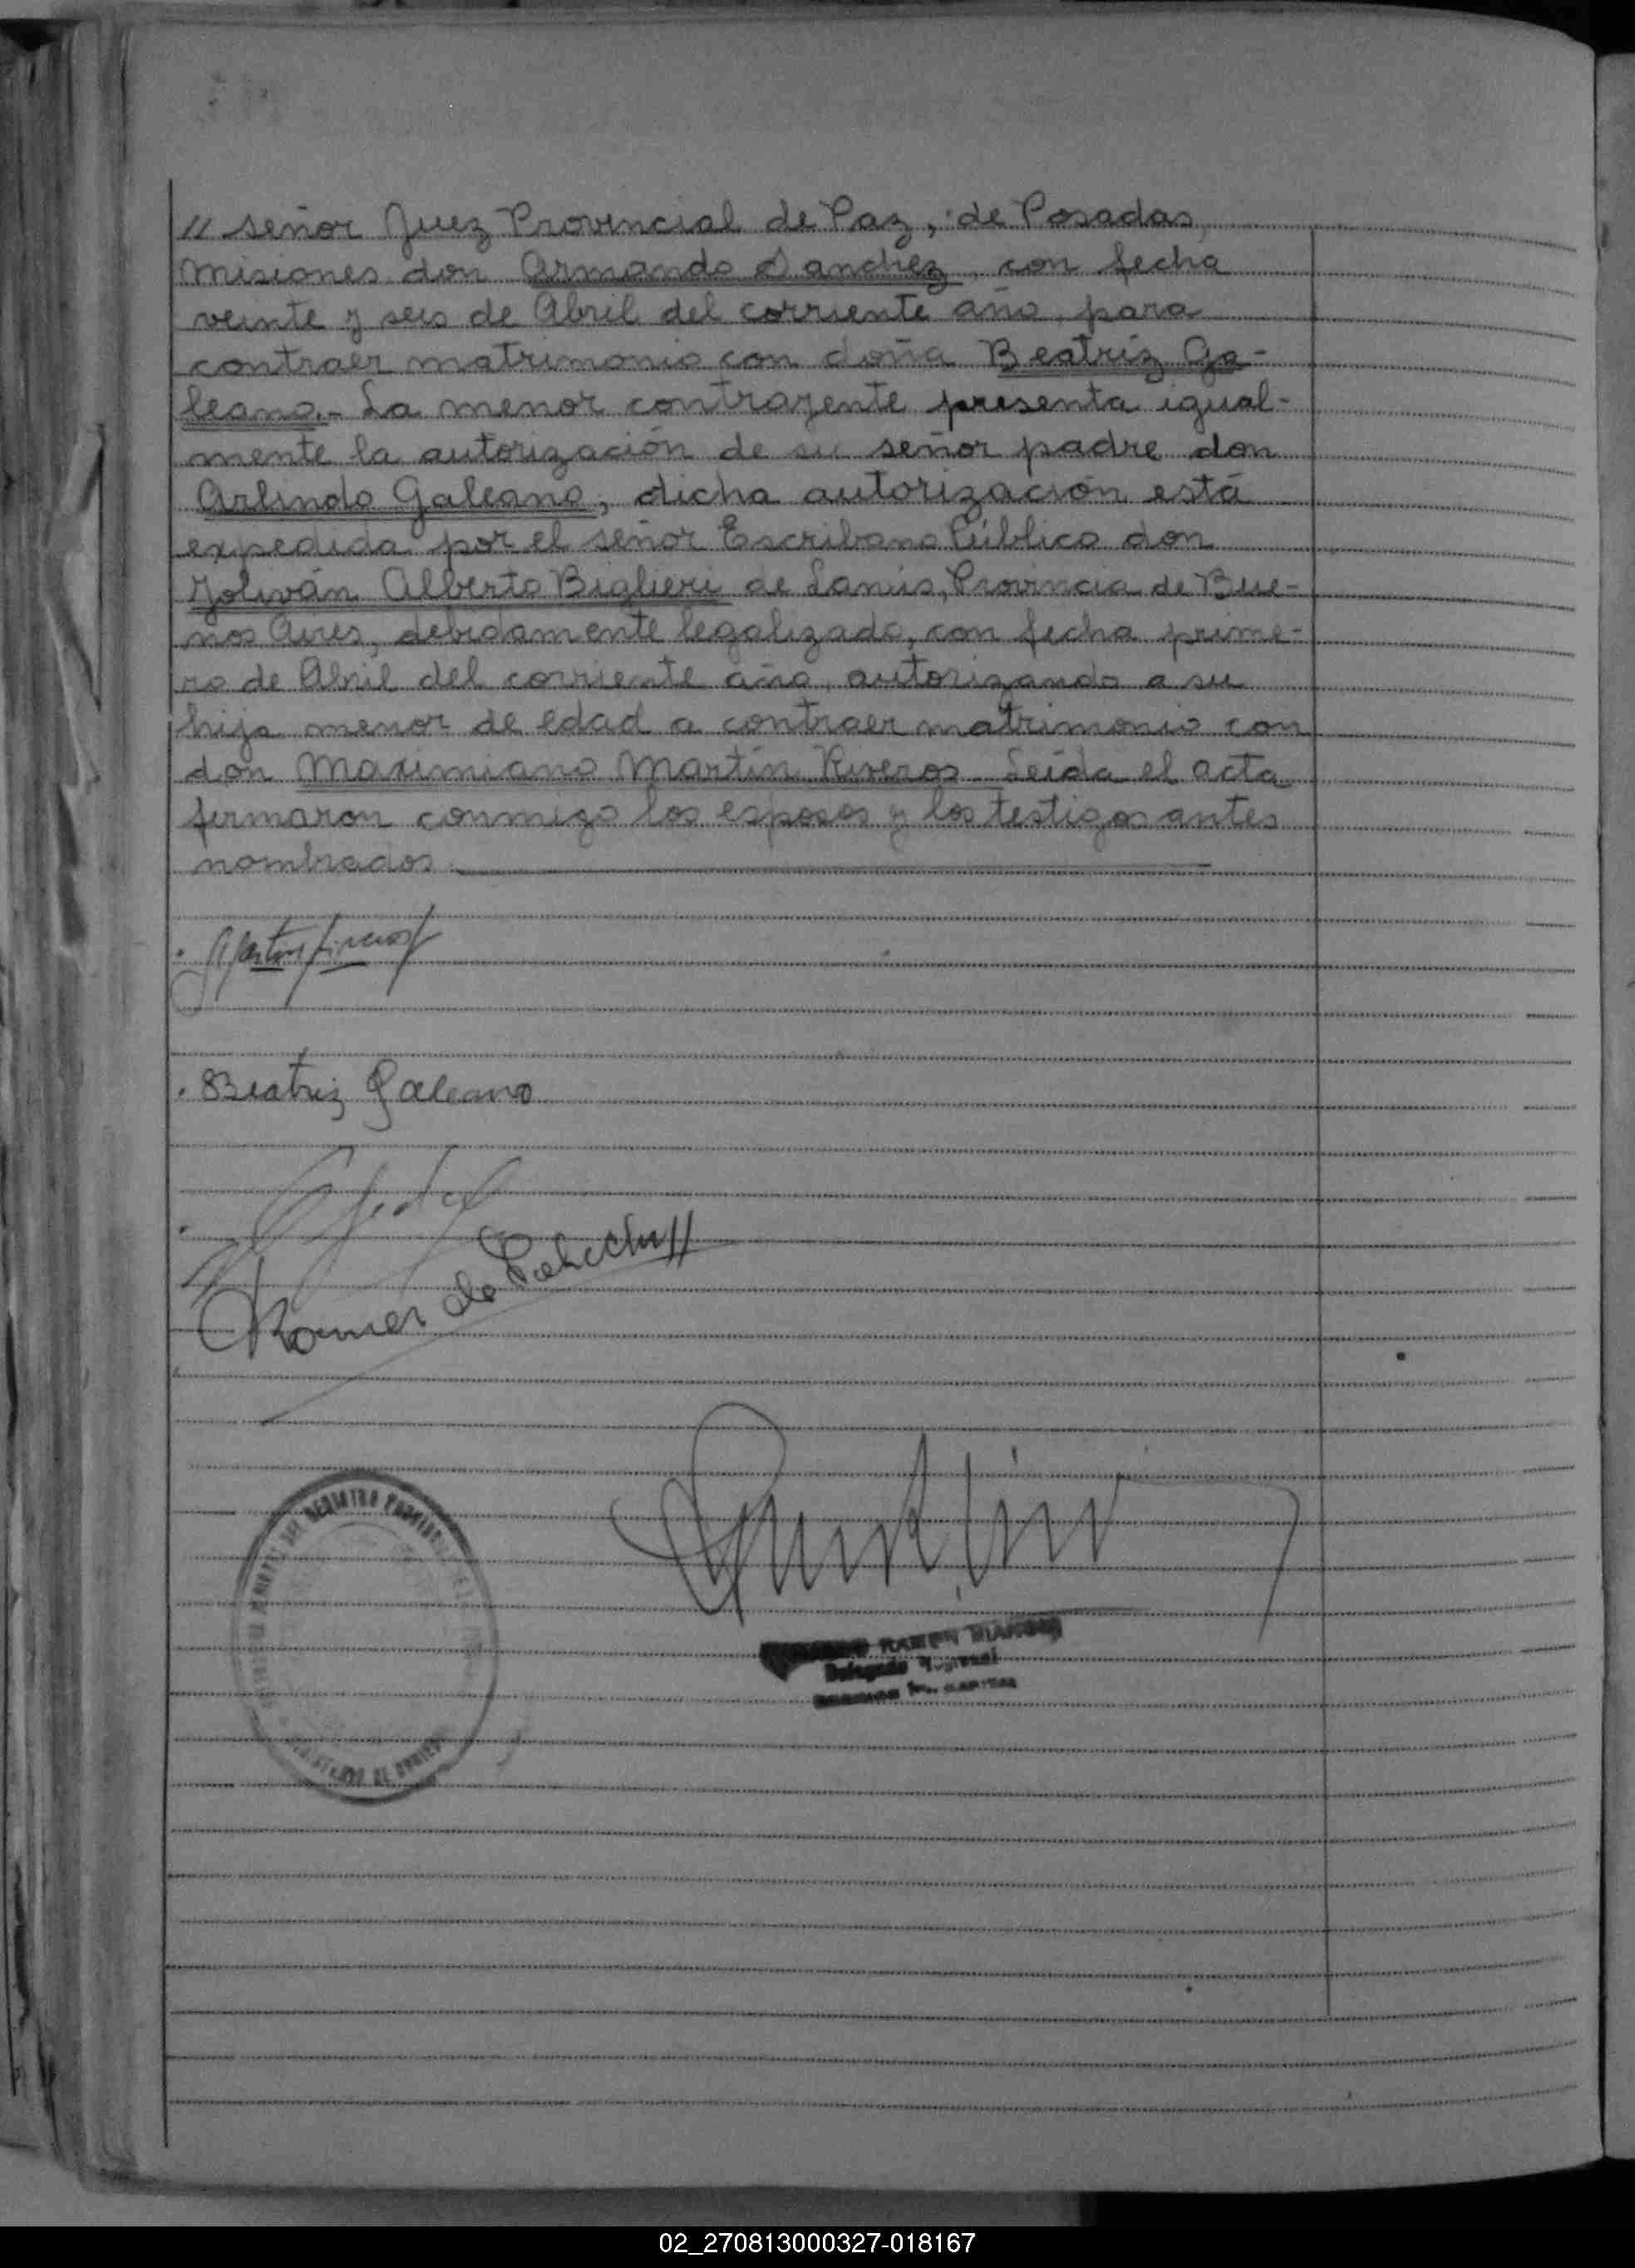 // señor Juez Provincial de Paz, de Posadas,
Misiones don Armando Sanchez, con fecha
veinte y seis de Abril del corriente año, para
contraer matrimonio con doña Beatriz Ga-
leano.- La menor contrayente presenta igual-
mente la autorización de su señor padre don
Arlindo Galeano, dicha autorización está
expedida por el señor Escribano Público don
Alberto Biglieri de Lanús, Provincia de Bue-
nos Aires, debidamente legalizado, con fecha prime-
ro de Abril del corriente año, autorizando a su
hija menor de edad a contraer matrimonio con
don Maximiano Martín Riveros. Leida el acta
firmaron conmigo los esposos y los testigos antes
nombrados.
Beatriz Galeano
de
REGISTRO
RAMON
Delegado
02_270813000327-018167